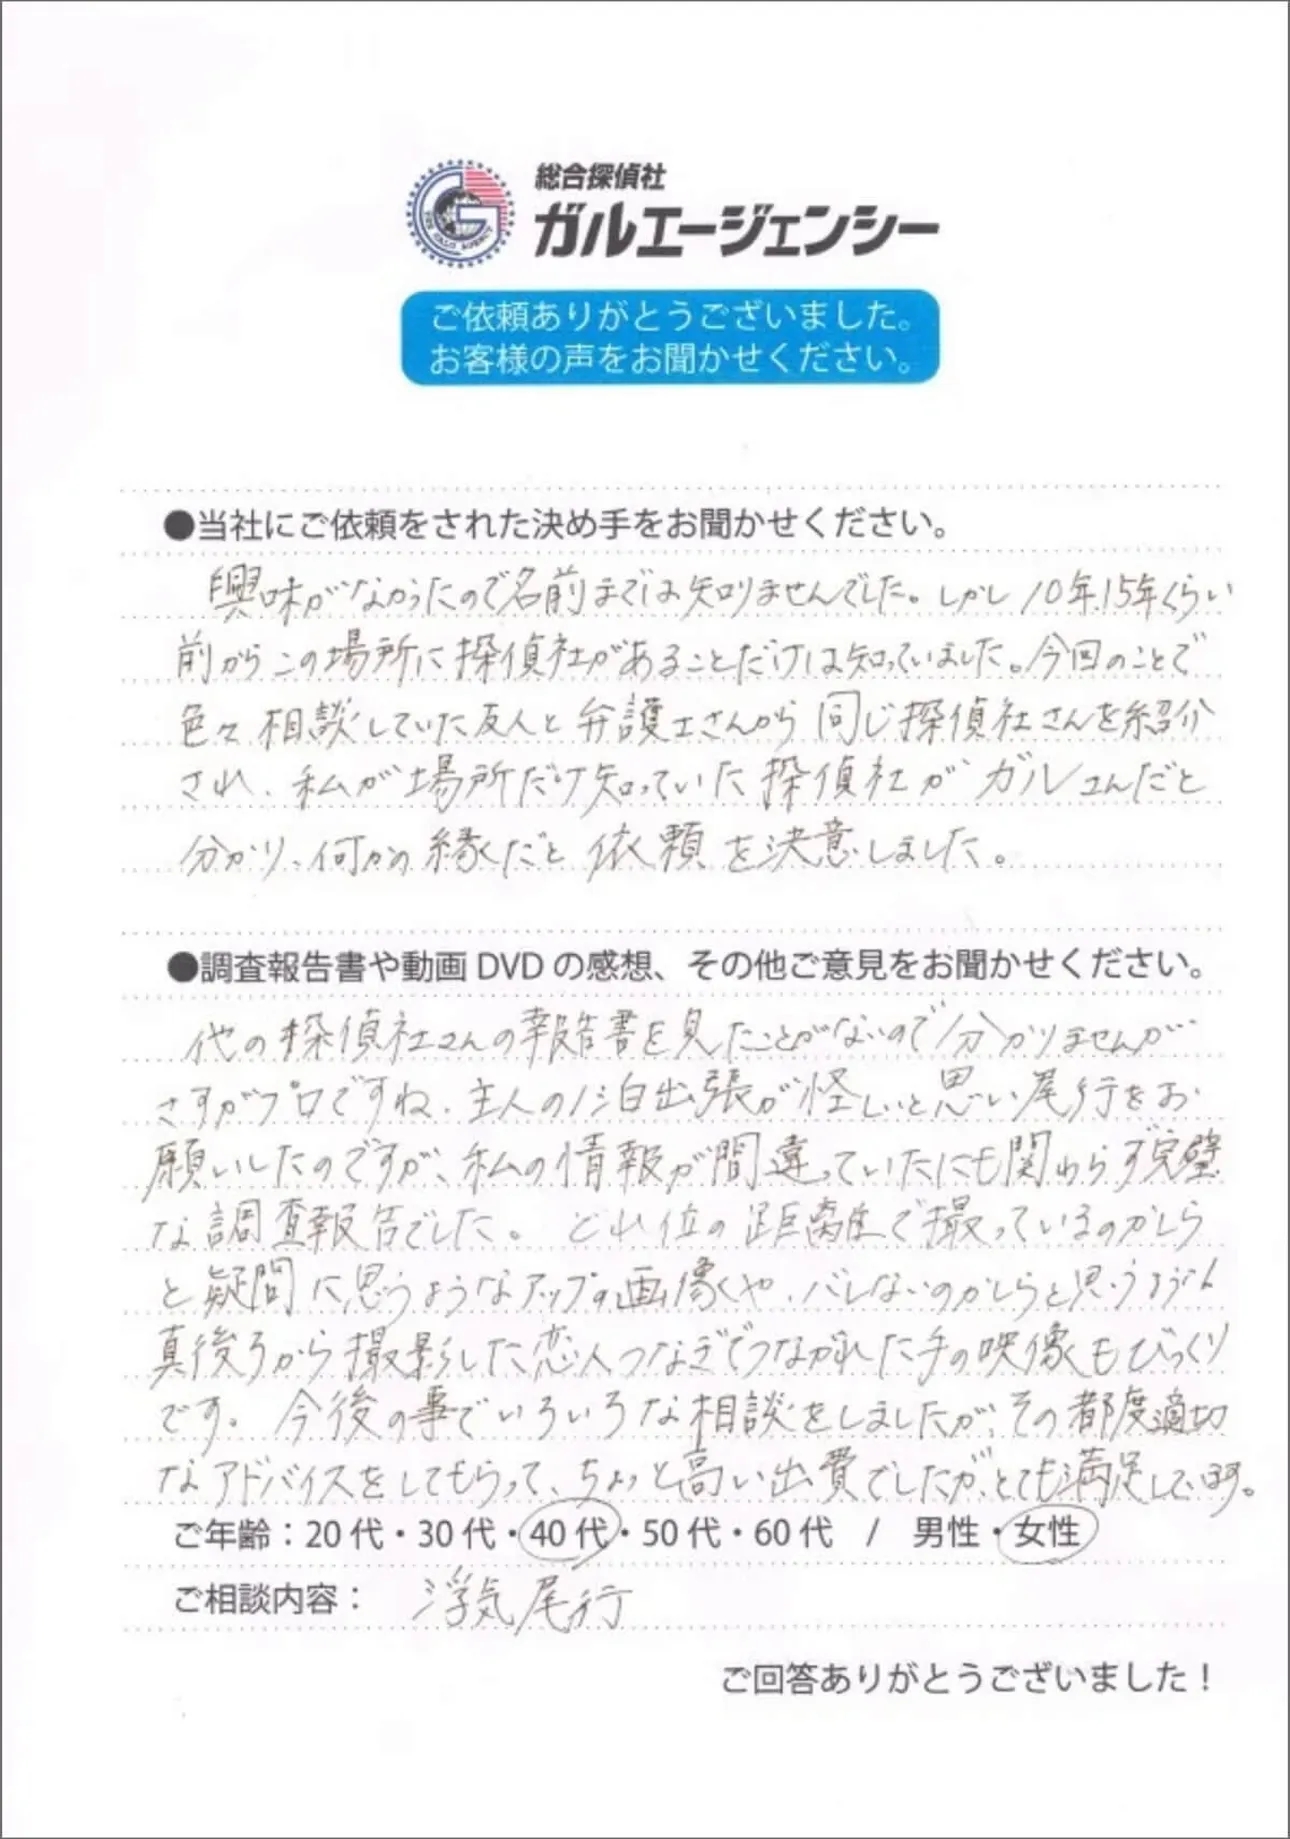 総合探偵社
ガルエージェンシー
ご依頼ありがとうございました。
お客様の声をお聞かせください。
●当社にご依頼をされた決め手をお聞かせください。
興味がなかったので名前までは知りませんでした。しかし10年15年くらい
前からこの場所に探偵社があることだけは知っていました。今回のことで
色々相談していた友人と弁護士さんから同じ探偵社さんを紹介
され、私が場所だけ知っていた探偵社がガルさんだと
分かり、何かの縁だと依頼を決意しました。
●調査報告書や動画DVDの感想、その他ご意見をお聞かせください。
他の探偵社さんの報告書を見たことがないので分かりませんが
さすがプロですね、主人の1泊出張が怪しいと思い尾行をお
願いしたのですが、私の情報が間違っていたにも関わらず完璧
な調査報告でした。どれ位の距離で撮っているのかしら
と疑問に思うようなアップの画像や、バレないのかしらと思うような
真後ろから撮影した恋人つなぎでつながれた手の映像もびっくり
です。今後の事でいろいろな相談をしましたが、その都度適切
なアドバイスをしてもらって、ちょっと高い出費でしたが、とても満足しています。
ご年齢：20代・30代・40代・50代・60代 / 男性・女性
ご相談内容： 浮気尾行
ご回答ありがとうございました！